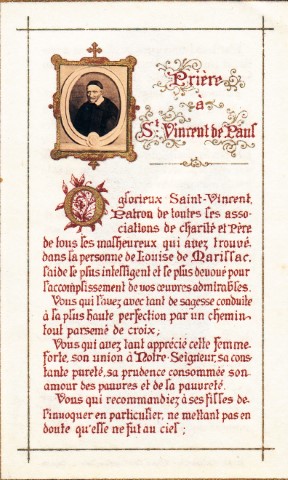 Prière
à
St Vincent de Paul
O glorieux Saint-Vincent,
Patron de toutes les asso-
ciations de charité et Père
de tous les malheureux qui avez trouvé
dans la personne de Louise de Marillac,
l'aide le plus intelligent et le plus dévoué pour
l'accomplissement de vos œuvres admirables.
Vous qui l'avez avec tant de sagesse conduite
à la plus haute perfection par un chemin
tout parsemé de croix ;
Vous qui avez tant apprécié cette femme
forte, son union à Notre-Seigneur, sa cons-
tante pureté, sa prudence consommée son
amour des pauvres et de la pauvreté.
Vous qui recommandiez à ses filles de
l'invoquer en particulier, ne mettant pas en
doute qu'elle ne fut au ciel ;